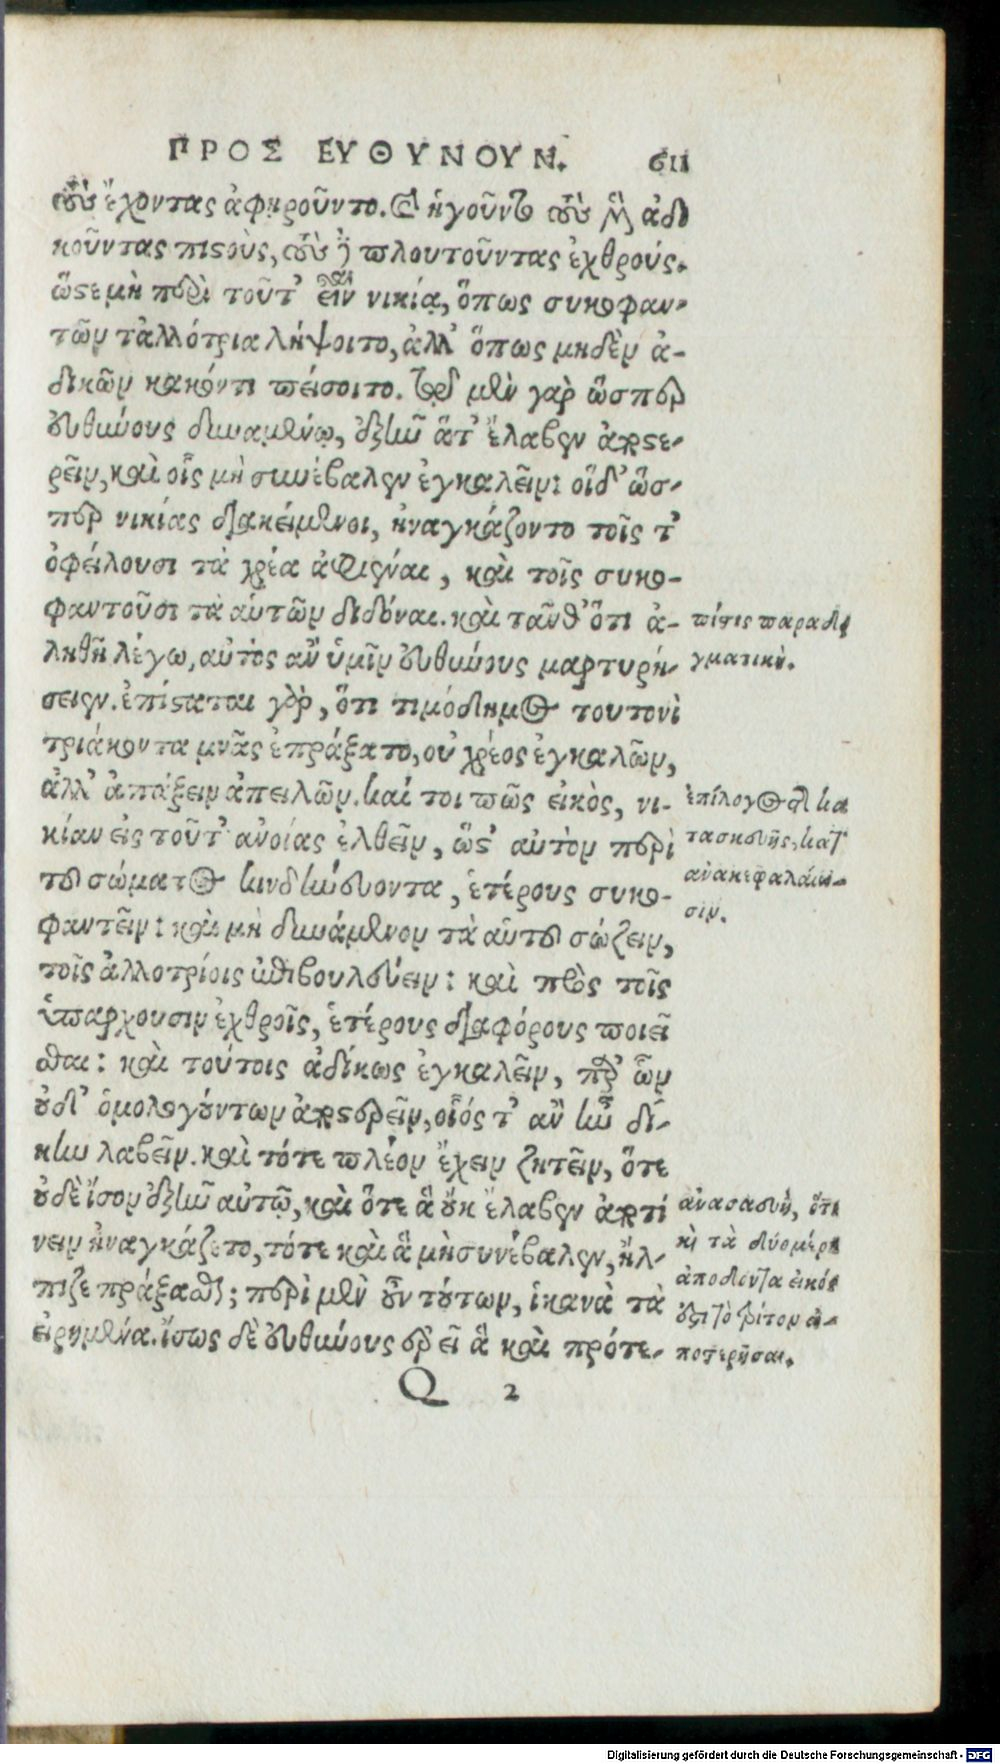 ΠΡΟΣ ΕΥΘΥΝΟΥΝ. 611
τοὺς ἔχοντας ἀφῃροῦντο. καὶ ἡγοῦντο τοὺς μὲν ἀδι
κοῦντας πιστοὺς, τοὺς δὲ πλουτοῦντας ἐχθρούς.
ὥστε μὴ περὶ τοῦτ' εἶναι νικίᾳ, ὅπως συκοφαν-
τῶν τἀλλότρια λήψοιτο, ἀλλ' ὅπως μηδὲν ἀ-
δικῶν κακόν τι πείσοιτο. τῷ μὲν γὰρ ὥσπερ
εὐθύνους δυναμένῳ, ἐξῆν ἅ τ' ἔλαβεν ἀποστε-
ρεῖν, καὶ οἷς μὴ συνέβαλεν ἐγκαλεῖν: οἱ δ' ὥσ-
περ νικίας διακείμενοι, ἠναγκάζοντο τοῖς τ'
ὀφείλουσι τὰ χρέα ἀφιέναι, καὶ τοῖς συκο-
φαντοῦσι τὰ αὑτῶν διδόναι. καὶ ταῦθ' ὅτι ἀ-
ληθῆ λέγω, αὐτὸς ἂν ὑμῖν εὐθύνους μαρτυρή-
σειεν. ἐπίσταται γὰρ, ὅτι τιμόδημος τουτονὶ
τριάκοντα μνᾶς ἐπράξατο, οὐ χρέος ἐγκαλῶν,
ἀλλ' ἀπάξειν ἀπειλῶν. καί τοι πῶς εἰκὸς, νι-
κίαν εἰς τοῦτ' ἀνοίας ἐλθεῖν, ὥστ' αὐτὸν περὶ
τοῦ σώματος κινδυνεύοντα, ἑτέρους συκο-
φαντεῖν: καὶ μὴ δυνάμενον τὰ αὑτοῦ σώζειν,
τοῖς ἀλλοτρίοις ἐπιβουλεύειν: καὶ πρὸς τοῖς
ὑπάρχουσιν ἐχθροῖς, ἑτέρους διαφόρους ποιεῖ
σθαι: καὶ τούτοις ἀδίκως ἐγκαλεῖν, παρ' ὧν
οὐδ' ὁμολογούντων ἀποστερεῖν, οἷός τ' ἂν ἦν δί-
κην λαβεῖν. καὶ τότε πλέον ἔχειν ζητεῖν, ὅτε
οὐδὲ ἴσον ἐξῆν αὐτῷ, καὶ ὅτε ἃ οὐκ ἔλαβεν ἀποτί
νειν ἠναγκάζετο, τότε καὶ ἃ μὴ συνέβαλεν, ἤλ-
πιζε πράξασθαι; περὶ μὲν οὖν τούτων, ἱκανὰ τὰ
εἰρημένα. ἴσως δὲ εὐθύνους ἐρεῖ ἃ καὶ πρότε-
Q 2
πίστις παραδει
γματική.
ἐπίλογος τῆς κα
τασκευῆς, κατ'
ἀνακεφαλαίω-
σιν.
ἀνασκευὴ, ὅτι
καὶ τὰ δύο μέρη
ἀποδόντα εἰκός
ἐστι τὸ τρίτον ἀ-
ποστερῆσαι.